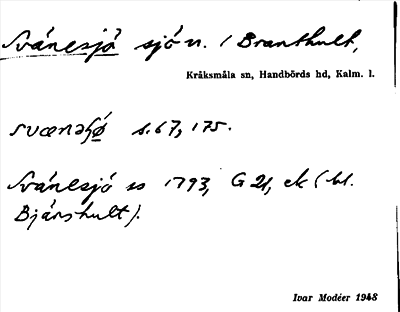 Svánesjö sjö n. / Branthult,
Kråksmåla sn, Handbörds hd, Kalm. l.
s. 67, 175.
Svánesjö ss 1793, G 21, ek (bl.
Bjärshult).
Ivar Modéer 1948